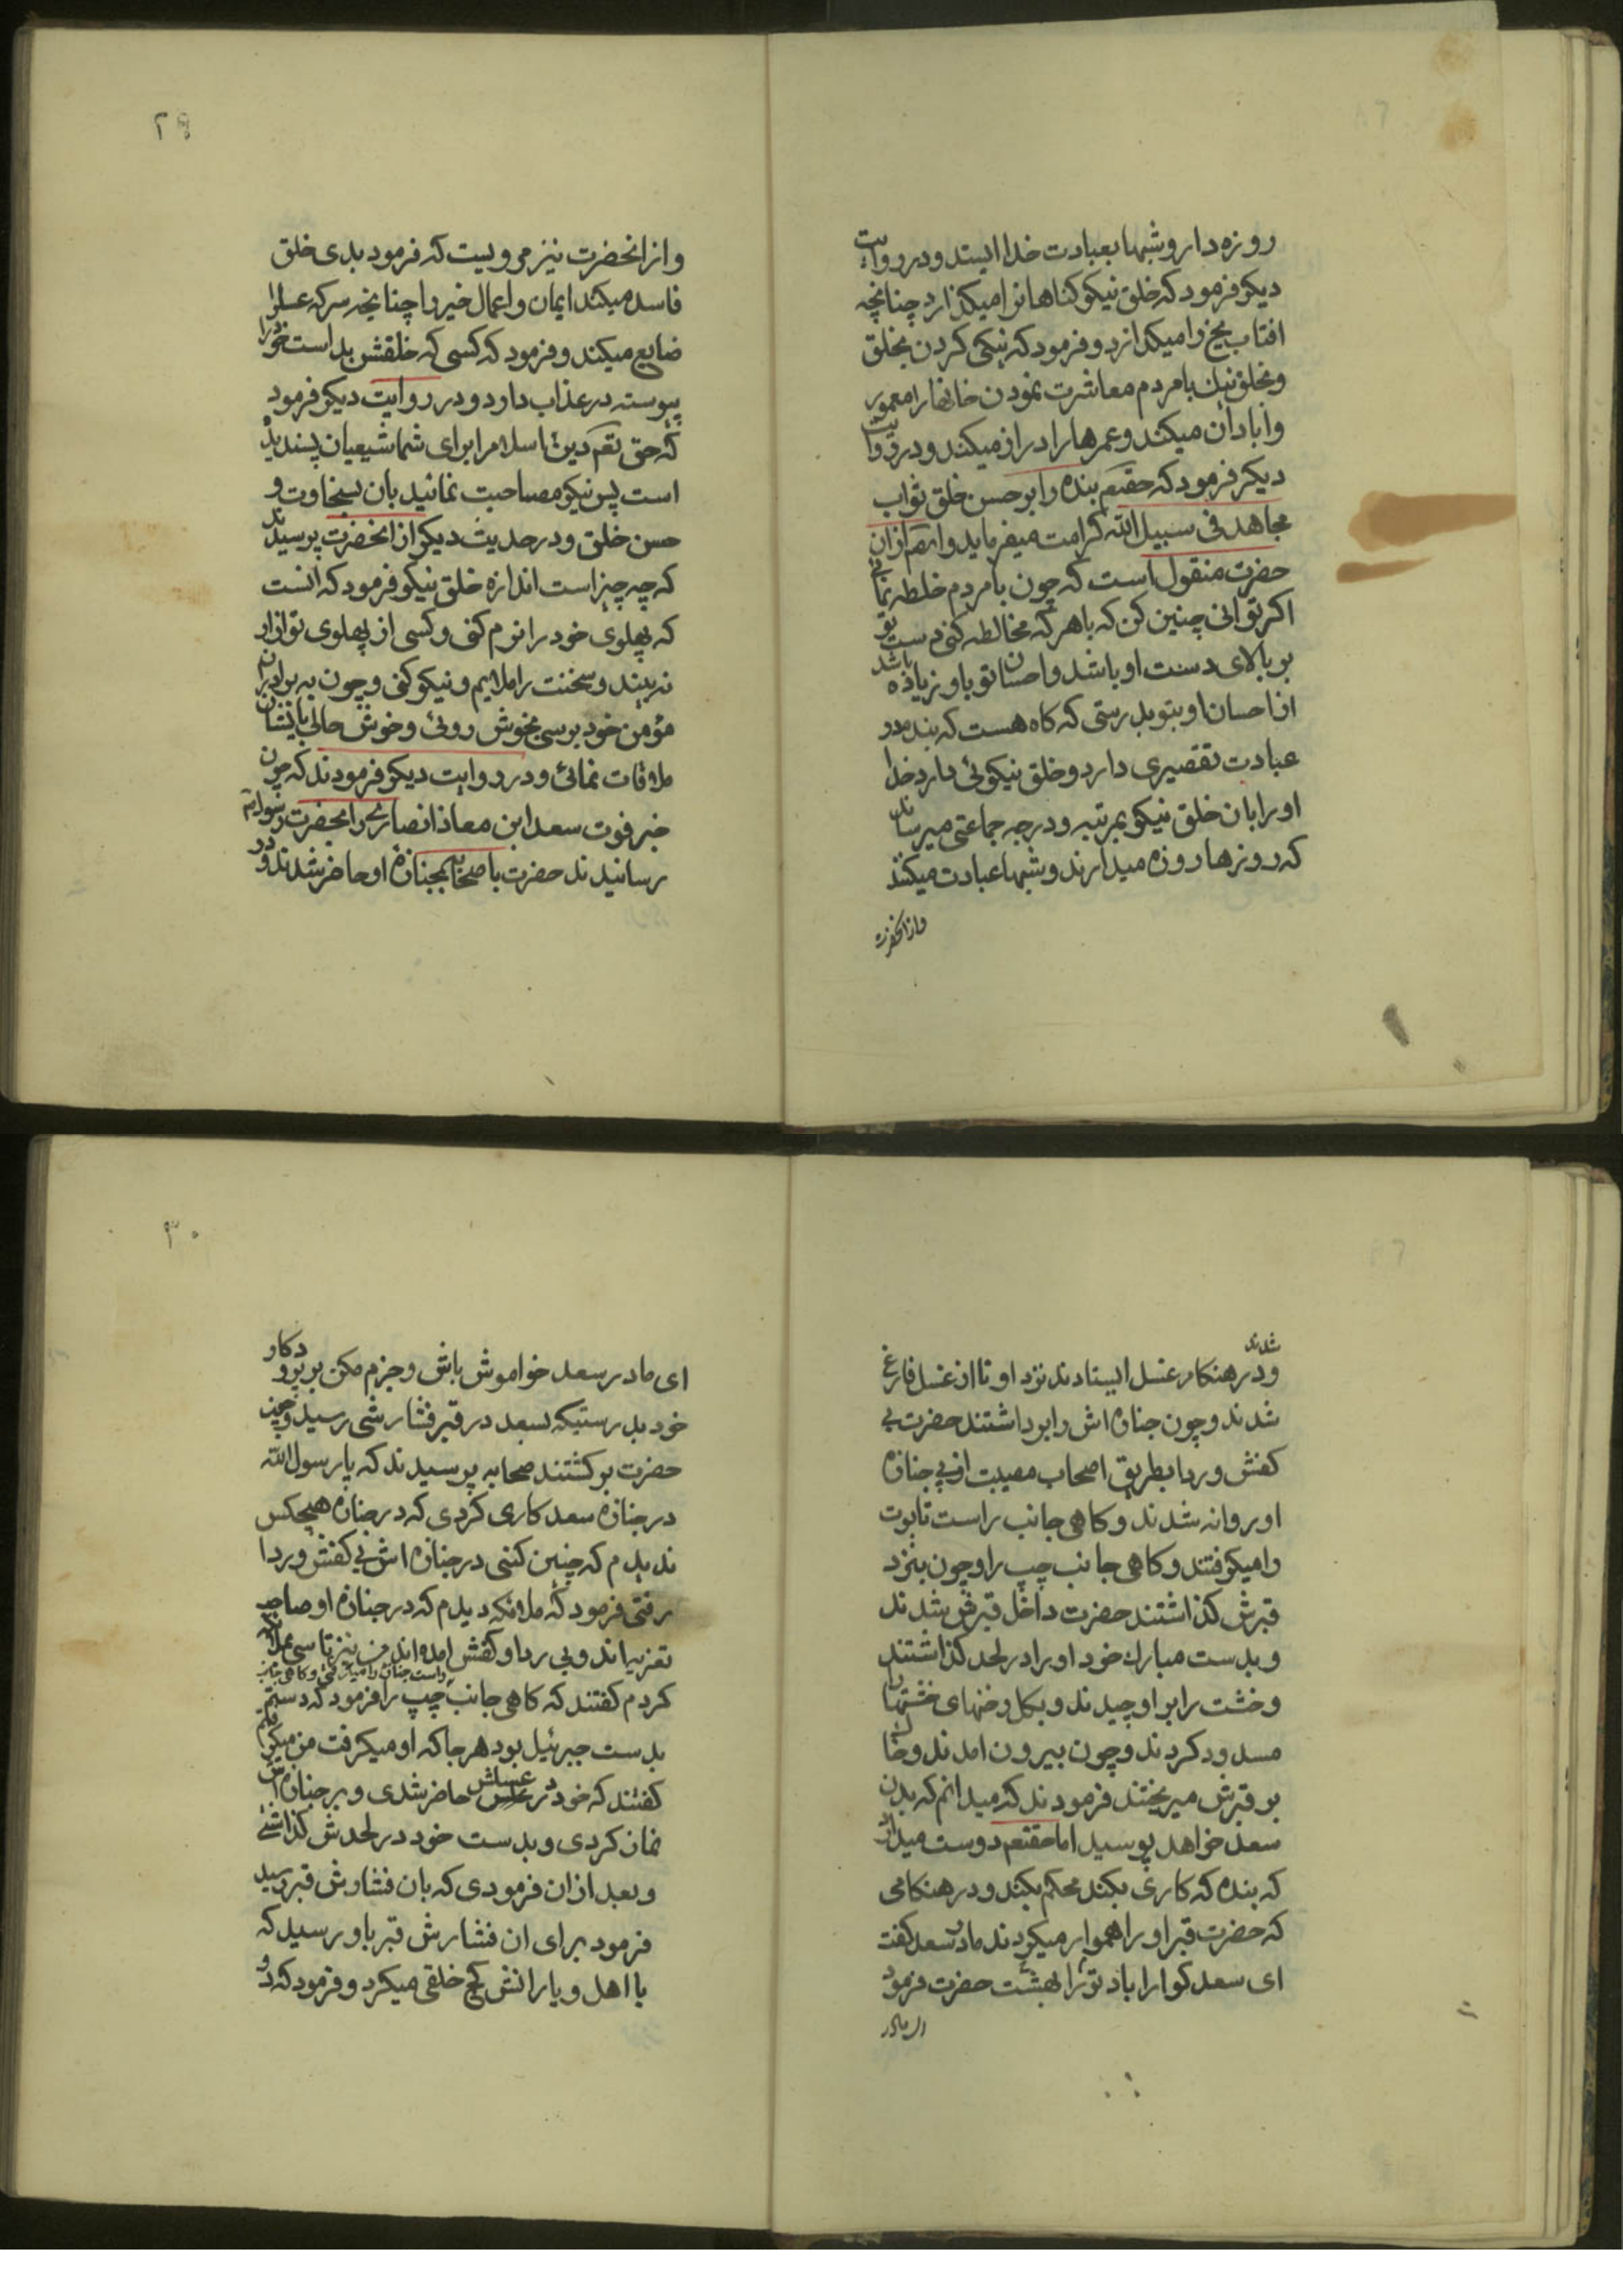 روزه دار و شبها بعبادت خدا ایستد و در روایت
دیکر فرمود که خلق نیکو کناهانرا میکذارد چنانچه
افتاب یخ را میکدازد و فرمود که نیکی کردن بخلق
وبخلق نیك با مردم معاشرت نمودن خانها را معمور
و ابادان میکند و عمرها را دراز میکند و در روایت
دیکر فرمود که حقتعم بنده را بر حسن خلق ثواب
مجاهد فی سبیل الله کرامت میفرماید و از ان
حضرت منقول است که چون با مردم خلطه نمائی
اکر توانی چنین کن که با هر که مخالطه کنی دست تو
بر بالای دست او باشد و احسان تو باو زیاده باشد
از احسان او بتو بدرستی که کاه هست که بنده در
عبادت تقصیری دارد و خلق نیکوئی دارد خدا
او را بان خلق نیکو بمرتبه و درجه جماعتی میرساند
که روزها روزه میدارند و شبها عبادت میکنند
وازانحضرت
۲۹
و از انحضرت نیز مرویست که فرمود بدی خلق
فاسد میکند ایمان و اعمال خیر را چنانچه سرکه عسلرا
ضایع میکند و فرمود که کسی که خلقش بد است خود را
پیوسته در عذاب دارد و در روایت دیکر فرمود
که حق تعم دین اسلام را برای شما شیعیان پسندیده
است پس نیکو مصاحبت نمائید بان بسخاوت و
حسن خلق و در حدیث دیکر از انحضرت پرسیدند
که چه چیز است اندازه خلق نیکو فرمود که انست
که پهلوی خود را نرم کنی و کسی از پهلوی تو ازار
نه بیند و سخنت را ملایم و نیکو کنی و چون به برادران
مؤمن خود برسی بخوش روئی و خوش حالی با ایشان
ملاقات نمائی و در روایت دیکر فرمودند که چون
خبر فوت سعد ابن معاذ انصاری را بحضرت رسول
رسانیدند حضرت با صحابه بجنازه او حاضر شدند و در
شدند
و در هنکام غسل ایستادند نزد او تا از غسل فارغ
شدند و چون جنازه اش را برداشتند حضرت بی
کفش و ردا بطریق اصحاب مصیبت از پی جنازه
او روانه شدند و کاهی جانب راست تابوت
را میکرفتند و کاهی جانب چپ را و چون بنزد
قبرش کذاشتند حضرت داخل قبرش شدند
و بدست مبارك خود او را در لحد کذاشتند
و خشت را بر او چیدند و بکل رخنهای خشتها را
مسدود کردند و چون بیرون امدند و خاك
بر قبرش میریختند فرمودند که میدانم که بدن
سعد خواهد پوسید اما حقتعم دوست میدارد
که بنده که کاری بکند محکم بکند و در هنکامی
که حضرت قبر او را هموار میکردند مادر سعد کفت
ای سعد کوارا باد تو را بهشت حضرت فرمود
ای مادر
۳۰
ای مادر سعد خواموش باش و جزم مکن بر پروردکار
خود بدرستیکه بسعد در قبر فشارشی رسید و چون
حضرت برکشتند صحابه پرسیدند که یا رسول الله
در جنازه سعد کاری کردی که در جنازه هیچکس
ندیدم که چنین کنی در جنازه اش بی کفش و ردا
رفتی فرمود که ملائکه دیدم که در جنازه او صاحب
تعزیه اند و بی ردا و کفش امده اند من نیز تاسی بملائکه
کردم کفتند که کاهی جانب راست جنازه را میکرفتی و کاهی جانب چپ را فرمود که دستم
بدست جبرئیل بود هر جا که او میکرفت من میکرفتم
کفتند که خود در غسلش حاضر شدی و بر جنازه اش
نماز کردی و بدست خود در لحدش کذاشتی
و بعد از ان فرمودی که بان فشارش قبر رسید
فرمود برای ان فشارش قبر باو رسید که
با اهل و یارانش کج خلقی میکرد و فرمود که دو